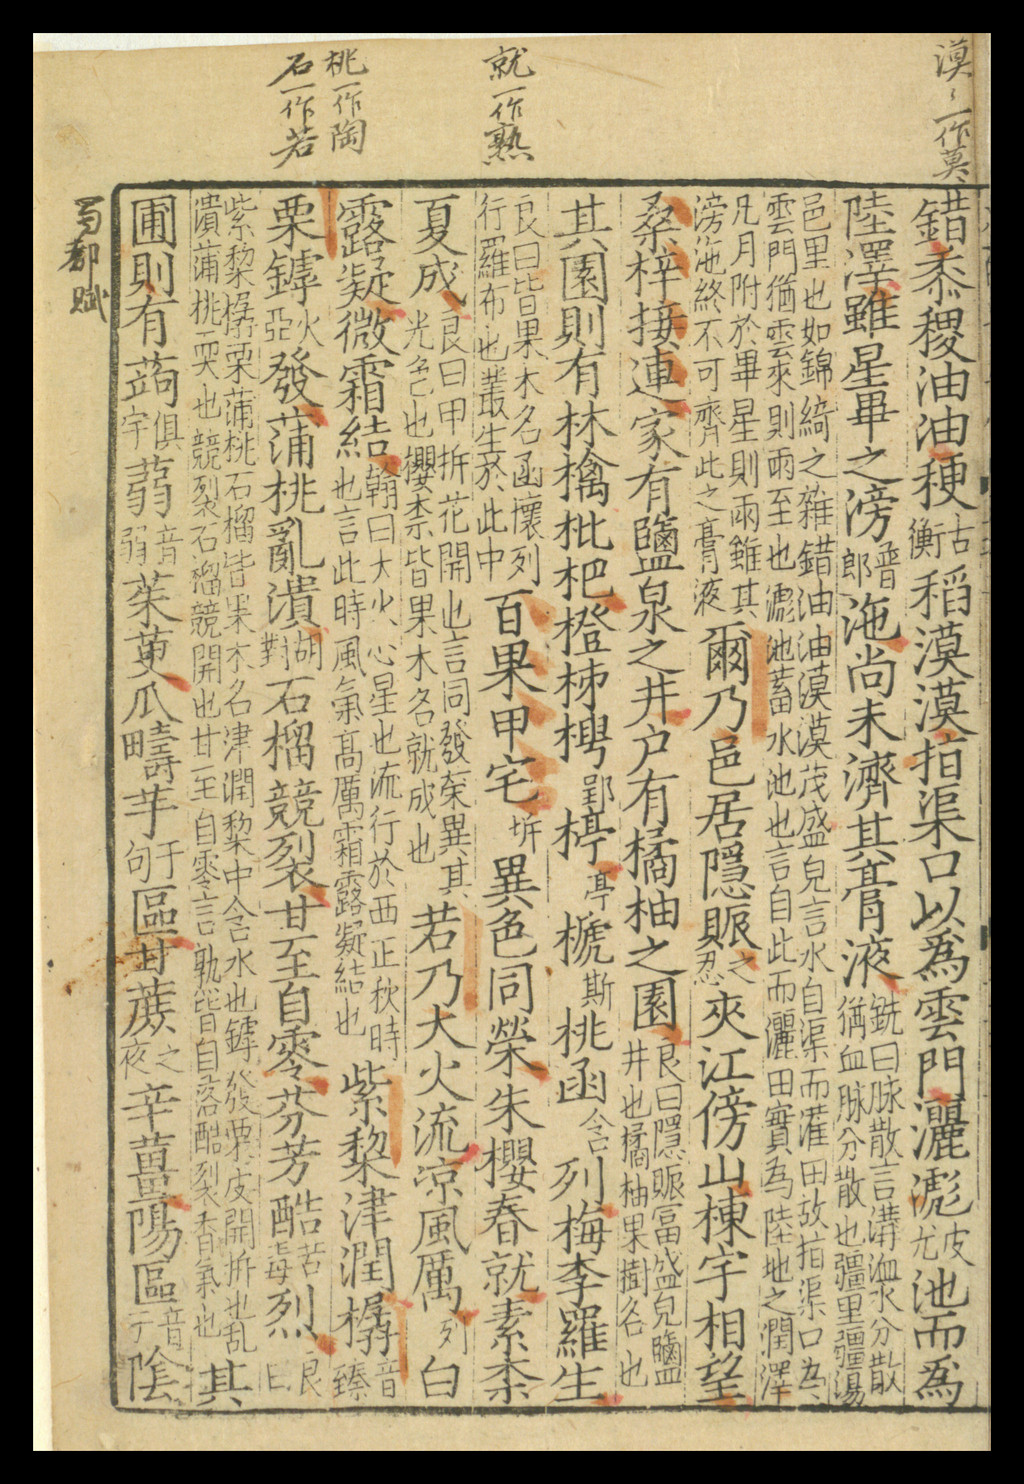 漠〻一作莫〻
就一作熟
桃一作陶
石一作若
錯黍稷油油稉古衡稻漠漠指渠口以爲雲門灑滮皮尤池而爲
陸澤雖星畢之滂普郎沲尚未濟其膏液銑曰脉散言溝洫水分散猶血脉分散也彊里彊場
邑里也如錦綺之雜錯油油漠漠茂盛皃言水自渠而灌田故指渠口為雲門猶雲來則雨至也滮池蓄水池也言自此而灑田實為陸地之潤澤
凡月附於畢星則雨雖其滂沲終不可齊此之膏液爾乃邑居隱賑之忍夾江傍山棟宇相望
桑梓接連家有鹽泉之井户有橘柚之園良曰隱賑冨盛皃鹽井也橘柚果樹名也
其園則有林檎枇杷橙柹梬郢楟亭榹斯桃函含列梅李羅生
良曰皆果木名函懷列行羅布也叢生於此中百果甲宅坼異色同榮朱櫻春就素柰
夏成良曰甲拆花開也言同發榮異其光色也櫻柰皆果木名就成也若乃大火流凉風厲列白
露凝微霜結翰曰大火心星也流行於西正秋時也言此時風氣髙厲霜露凝結也紫棃津潤樼音臻
栗罅火亞發蒲桃亂潰胡對石榴競裂甘至自零芬芳酷苦毒烈良曰
紫棃樼栗蒲桃石榴皆果木名津潤棃中含水也罅發栗皮開拆也乱潰蒲桃也競裂石榴競開也甘至自零言熟皆自落酷烈香氣也其
圃則有蒟俱宇蒻音弱茱萸瓜疇芋于句區甘蔗之夜辛薑陽區音于陰
蜀都賦